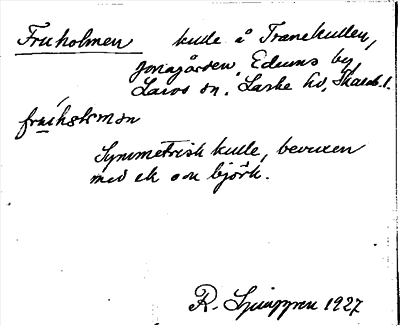 Fruholmen kulle å Tranekullen,
Jonsgården, Edums by,
Larvs sn. Laske hd, Skarab. l.
Symmetrisk kulle, bevuxen
med ek o en björk.
R. Ljunggren 1927